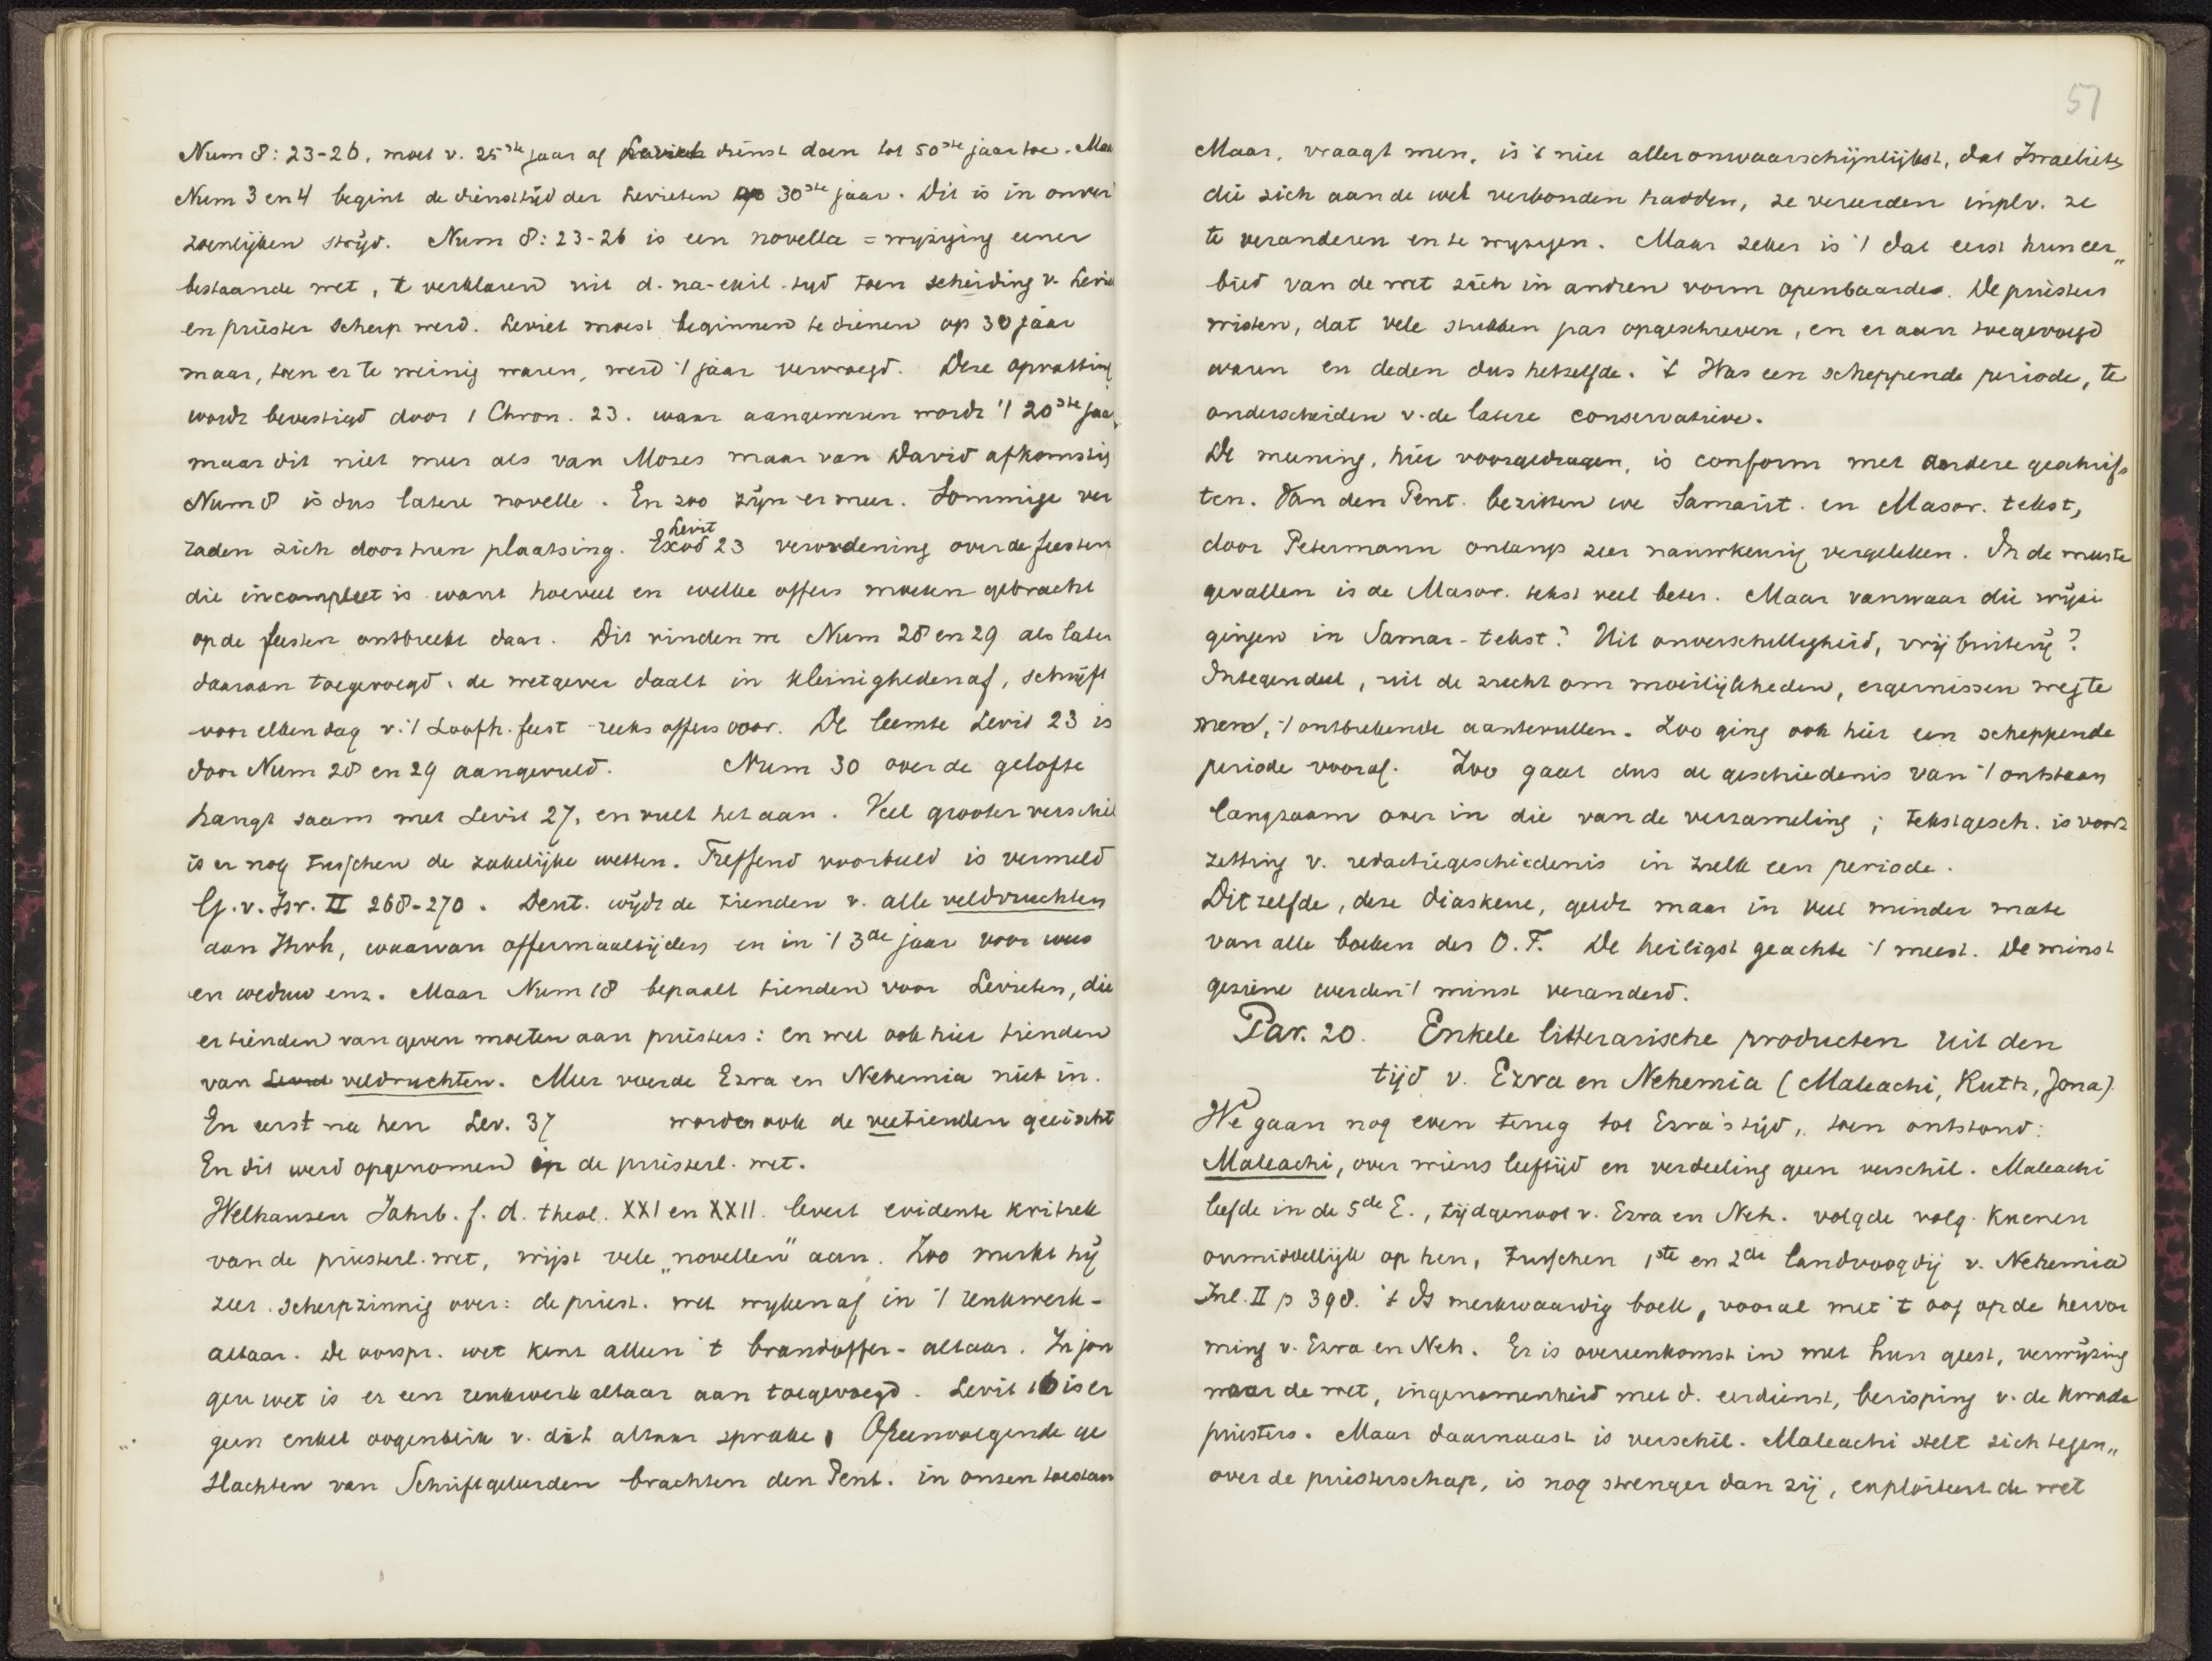 Num 8: 23-26, moet v. 25ste jaar af Leviet dienst doen tot 50ste jaar toe. Maa
Num 3 en 4 begint de diensttijd der Levieten op 30ste jaar. Dit is in onver
zoenlijken strijd. Num 8: 23-26 is een novella = wijziging eener
bestaande wet, te verklaren uit d. na-exil. tijd toen scheiding v. Levie
en priester scherp werd. Leviet moest beginnen te dienen op 30 jaar
maar, toen er te weinig waren, werd 't jaar vervroegd. Deze opvatting
wordt bevestigd door 1 Chron. 23. waar aangewezen wordt 't 20ste jaa
maar dit niet meer als van Mozes maar van David afkomstig
Num 8 is dus latere novelle. En zoo zijn er meer. Sommige ver
raden zich door hun plaatsing. Exod Levit 23 verordening over de feesten
die incompleet is want hoeveel en welke offers moeten gebracht
op de feesten ontbreekt daar. Dit vinden we Num 28 en 29 als later
daaraan toegevoegd. de wetgever daalt in kleinigheden af, schrijft
voor elken dag v. 't Loofh. feest reeks offers voor. De leemte Levit 23 is
door Num 28 en 29 aangevuld. Num 30 over de gelofte
hangt saam met Levit 27, en vult het aan. Veel grooter verschil
is er nog tusschen de zakelijke wetten. Treffend voorbeeld is vermeld
G. v. Isr. II 268-270. Deut. wijdt de tienden v. alle veldvruchten
aan Jhvh, waarvan offermaaltijden en in 't 3de jaar voor wees
en weduw enz. Maar Num 18 bepaalt tienden voor Levieten, die
er tienden van geven moeten aan priesters: en wel ook hier tienden
van Levit veldvruchten. Meer voerde Ezra en Nehemia niet in.
En eerst na hen Lev. 37 worden ook de veetienden geëischt
En dit werd opgenomen in de priesterl. wet.
Welhausen Jahrb. f. d. theol. XXI en XXII. levert evidente kritiek
van de priesterl. wet, wijst vele „novellen" aan. Zoo merkt hij
zeer scherpzinnig over: de priest. wet wijken af in 't reukwerk-
altaar. De oorspr. wet kent alleen 't brandoffer-altaar. In jon
gere wet is er een reukwerkaltaar aan toegevoegd. Levit 16 is er
geen enkel oogenblik v. dit altaar sprake. Opeenvolgende ge
slachten van Schriftgeleerden brachten den Pent. in onzen toestan
57
Maar, vraagt men, is 't niet alleronwaarschijnlijkst, dat Israelieten
die zich aan de wet verbonden hadden, ze vereerden inplv. ze
te veranderen en te wijzigen. Maar zeker is 't dat eerst hun eer„
bied van de wet zich in andren vorm openbaarde. De priesters
wisten, dat vele stukken pas opgeschreven, en er aan toegevoegd
waren en deden dus hetzelfde. 't Was een scheppende periode, te
onderscheiden v. de latere conservatieve.
De meening, hier voorgedragen, is conform met andere geschrif
ten. Van den Pent. bezitten we Samarit. en Masor. tekst,
door Petermann onlangs zeer nauwkeurig vergeleken. In de meeste
gevallen is de Masor. tekst veel beter. Maar vanwaar die wijzi
gingen in Samar-tekst? Uit onverschilligheid, vrijbuiterij?
Integendeel, uit de zucht om moeilijkheden, ergernissen weg te
nemen, 't ontbrekende aantevullen. Zoo ging ook hier een scheppende
periode vooraf. Zoo gaat dus de geschiedenis van 't ontstaan
langzaam over in die van de verzameling; tekstgesch. is voort
zetting v. redactiegeschiedenis in zulk een periode.
Ditzelfde, deze diaskeue, geldt maar in veel minder mate
van alle boeken des O.T. De heiligst geachte 't meest. De minst
geziene werden 't minst veranderd.
Par. 20. Enkele litterarische producten uit den
tijd v. Ezra en Nehemia (Maleachi, Ruth, Jona)
We gaan nog even terug tot Ezra's tijd, toen ontstond:
Maleachi, over wiens leeftijd en verdeeling geen verschil. Maleachi
leefde in de 5de E., tijdgenoot v. Ezra en Neh. volgde volg. Kuenen
onmiddellijk op hen, tusschen 1ste en 2de landvoogdij v. Nehemia
Inl. II p 398. 't Is merkwaardig boek, vooral met 't oog op de hervor
ming v. Ezra en Neh. Er is overeenkomst in met hun geest, verwijzing
naar de wet, ingenomenheid met d. eerdienst, berisping v. de kwade
priesters. Maar daarnaast is verschil. Maleachi stelt zich tegen„
over de priesterschap, is nog strenger dan zij, exploiteert de wet